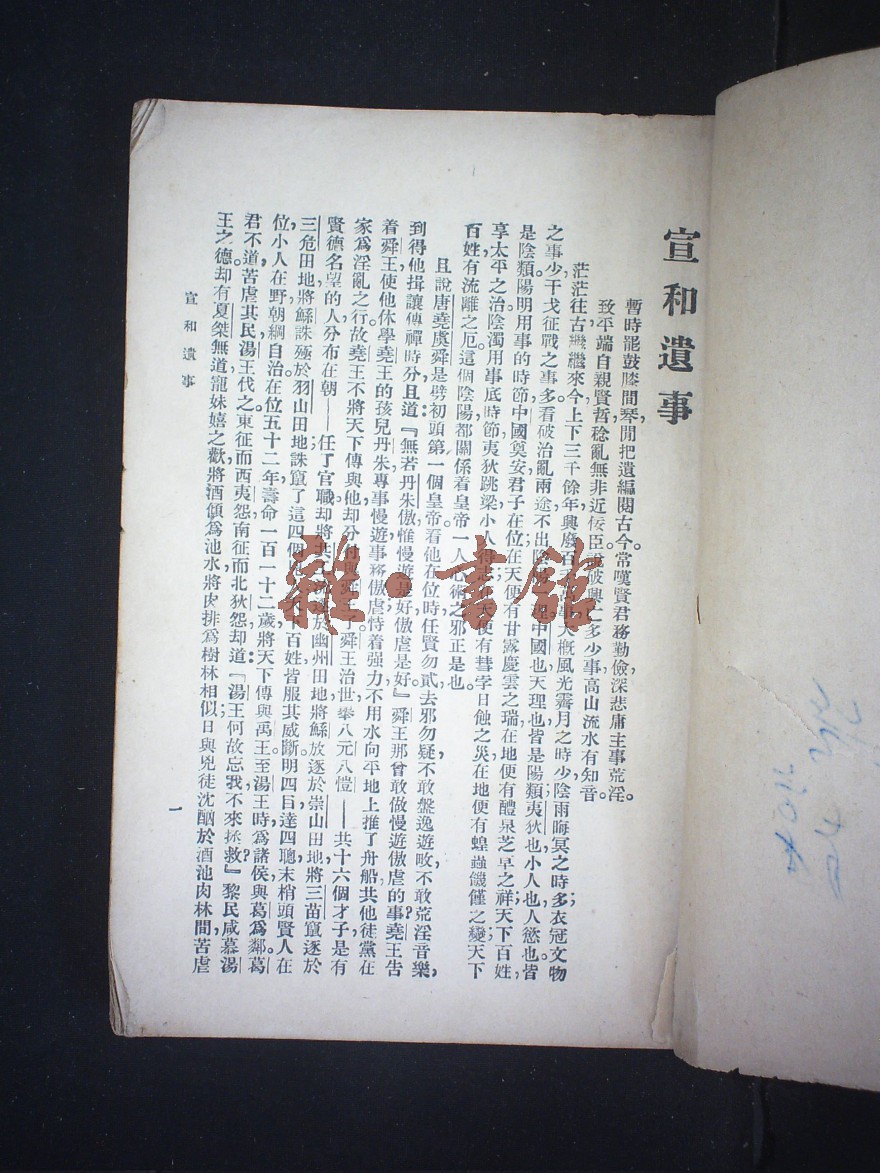 宣和遺事
暫時罷鼓膝間琴，閒把遺編閱古今。常嘆賢君務勤儉，深悲庸主事荒淫。
致平端自親賢哲，稔亂無非近佞臣。說破興亡多少事，高山流水有知音。
茫茫往古，繼繼來今，上下三千餘年，興廢百 大概風光霽月之時少，陰雨晦冥之時多；衣冠文物
之事少，干戈征戰之事多。看破治亂兩途，不出陰陽 中國也，天理也，皆是陽類；夷狄也，小人也，人慾也，皆
是陰類。陽明用事的時節，中國奠安，君子在位，在天便有甘露慶雲之瑞，在地便有醴泉芝草之祥，天下百姓，
享太平之治。陰濁用事底時節，夷狄跳梁，小人得志，在天便有彗孛日蝕之災，在地便有蝗蟲饑饉之變，天下
百姓，有流離之厄。這個陰陽，都關係着皇帝一人心術之邪正是也。
且說唐堯虞舜，是劈初頭第一個皇帝。看他在位時，任賢勿貳，去邪勿疑，不敢盤逸遊畋，不敢荒淫音樂，
到得他揖讓傳禪時分，且道：『無若丹朱傲，惟慢遊是好，傲虐是好。』舜王那曾敢做慢遊傲虐的事？堯王告
着舜王，使他休學堯王的孩兒丹朱，專事慢遊，事務傲虐，恃着强力，不用水，向平地上推了舟船，共他徒黨在
家爲淫亂之行。故堯王不將天下傳與他，却分付與舜 舜王治世，舉八元八愷——共十六個才子，是有
賢德名望的人，分布在朝——任了官職；却將共 於幽州田地，將鯀放逐於崇山田地，將三苗竄逐於
三危田地，將鯀誅殛於羽山田地。誅竄了這四個 天下百姓，皆服其威斷。明四目，達四聰，末梢頭賢人在
位，小人在野，朝綱自治。在位五十二年，壽命一百一十二歲，將天下傳與禹王。至湯王時，爲諸侯，與葛爲鄰。葛
君不道，苦虐其民，湯王伐之。東征而西夷怨，南征而北狄怨，却道：『湯王何故忘我，不來拯救？』黎民咸慕湯
王之德。却有夏桀無道，寵妹嬉之歡，將酒傾爲池水，將肉排爲樹林相似；日與兇徒沈酗於酒池肉林間，苦虐
宣和遺事
一
雜·書館